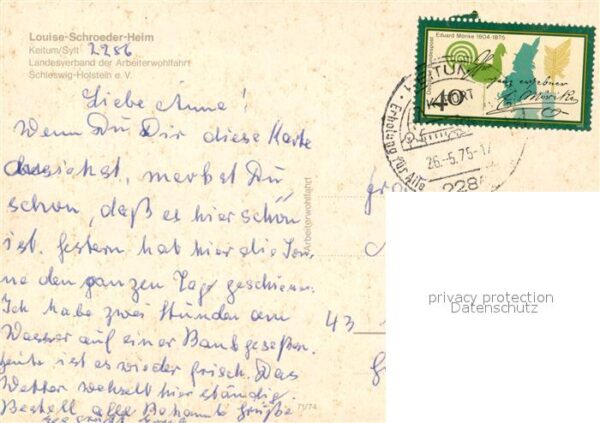 Louise-Schroeder-Heim
Keitum/Sylt 2286
Landesverband der Arbeiterwohlfahrt
Schleswig-Holstein e. V.
Liebe Anna!
Wenn Du Dir diese Karte
ansiehst, merkst Du
schon, daß es hier schön
ist. Gestern hat hier die Son-
ne den ganzen Tag geschienen.
Ich habe zwei Stunden am
Wasser auf einer Bank gesessen.
Heute ist es wieder frisch. Das
Wetter wechselt hier ständig.
Bestell alle Bekannte Grüße
Arbeiterwohlfahrt
71/74
Deutsche Bundespost
Eduard Mörike 1804-1875
40
E. Mörike
KURORT
Erholung für Alle
26.-5.75-17
228
43
privacy protection
Datenschutz